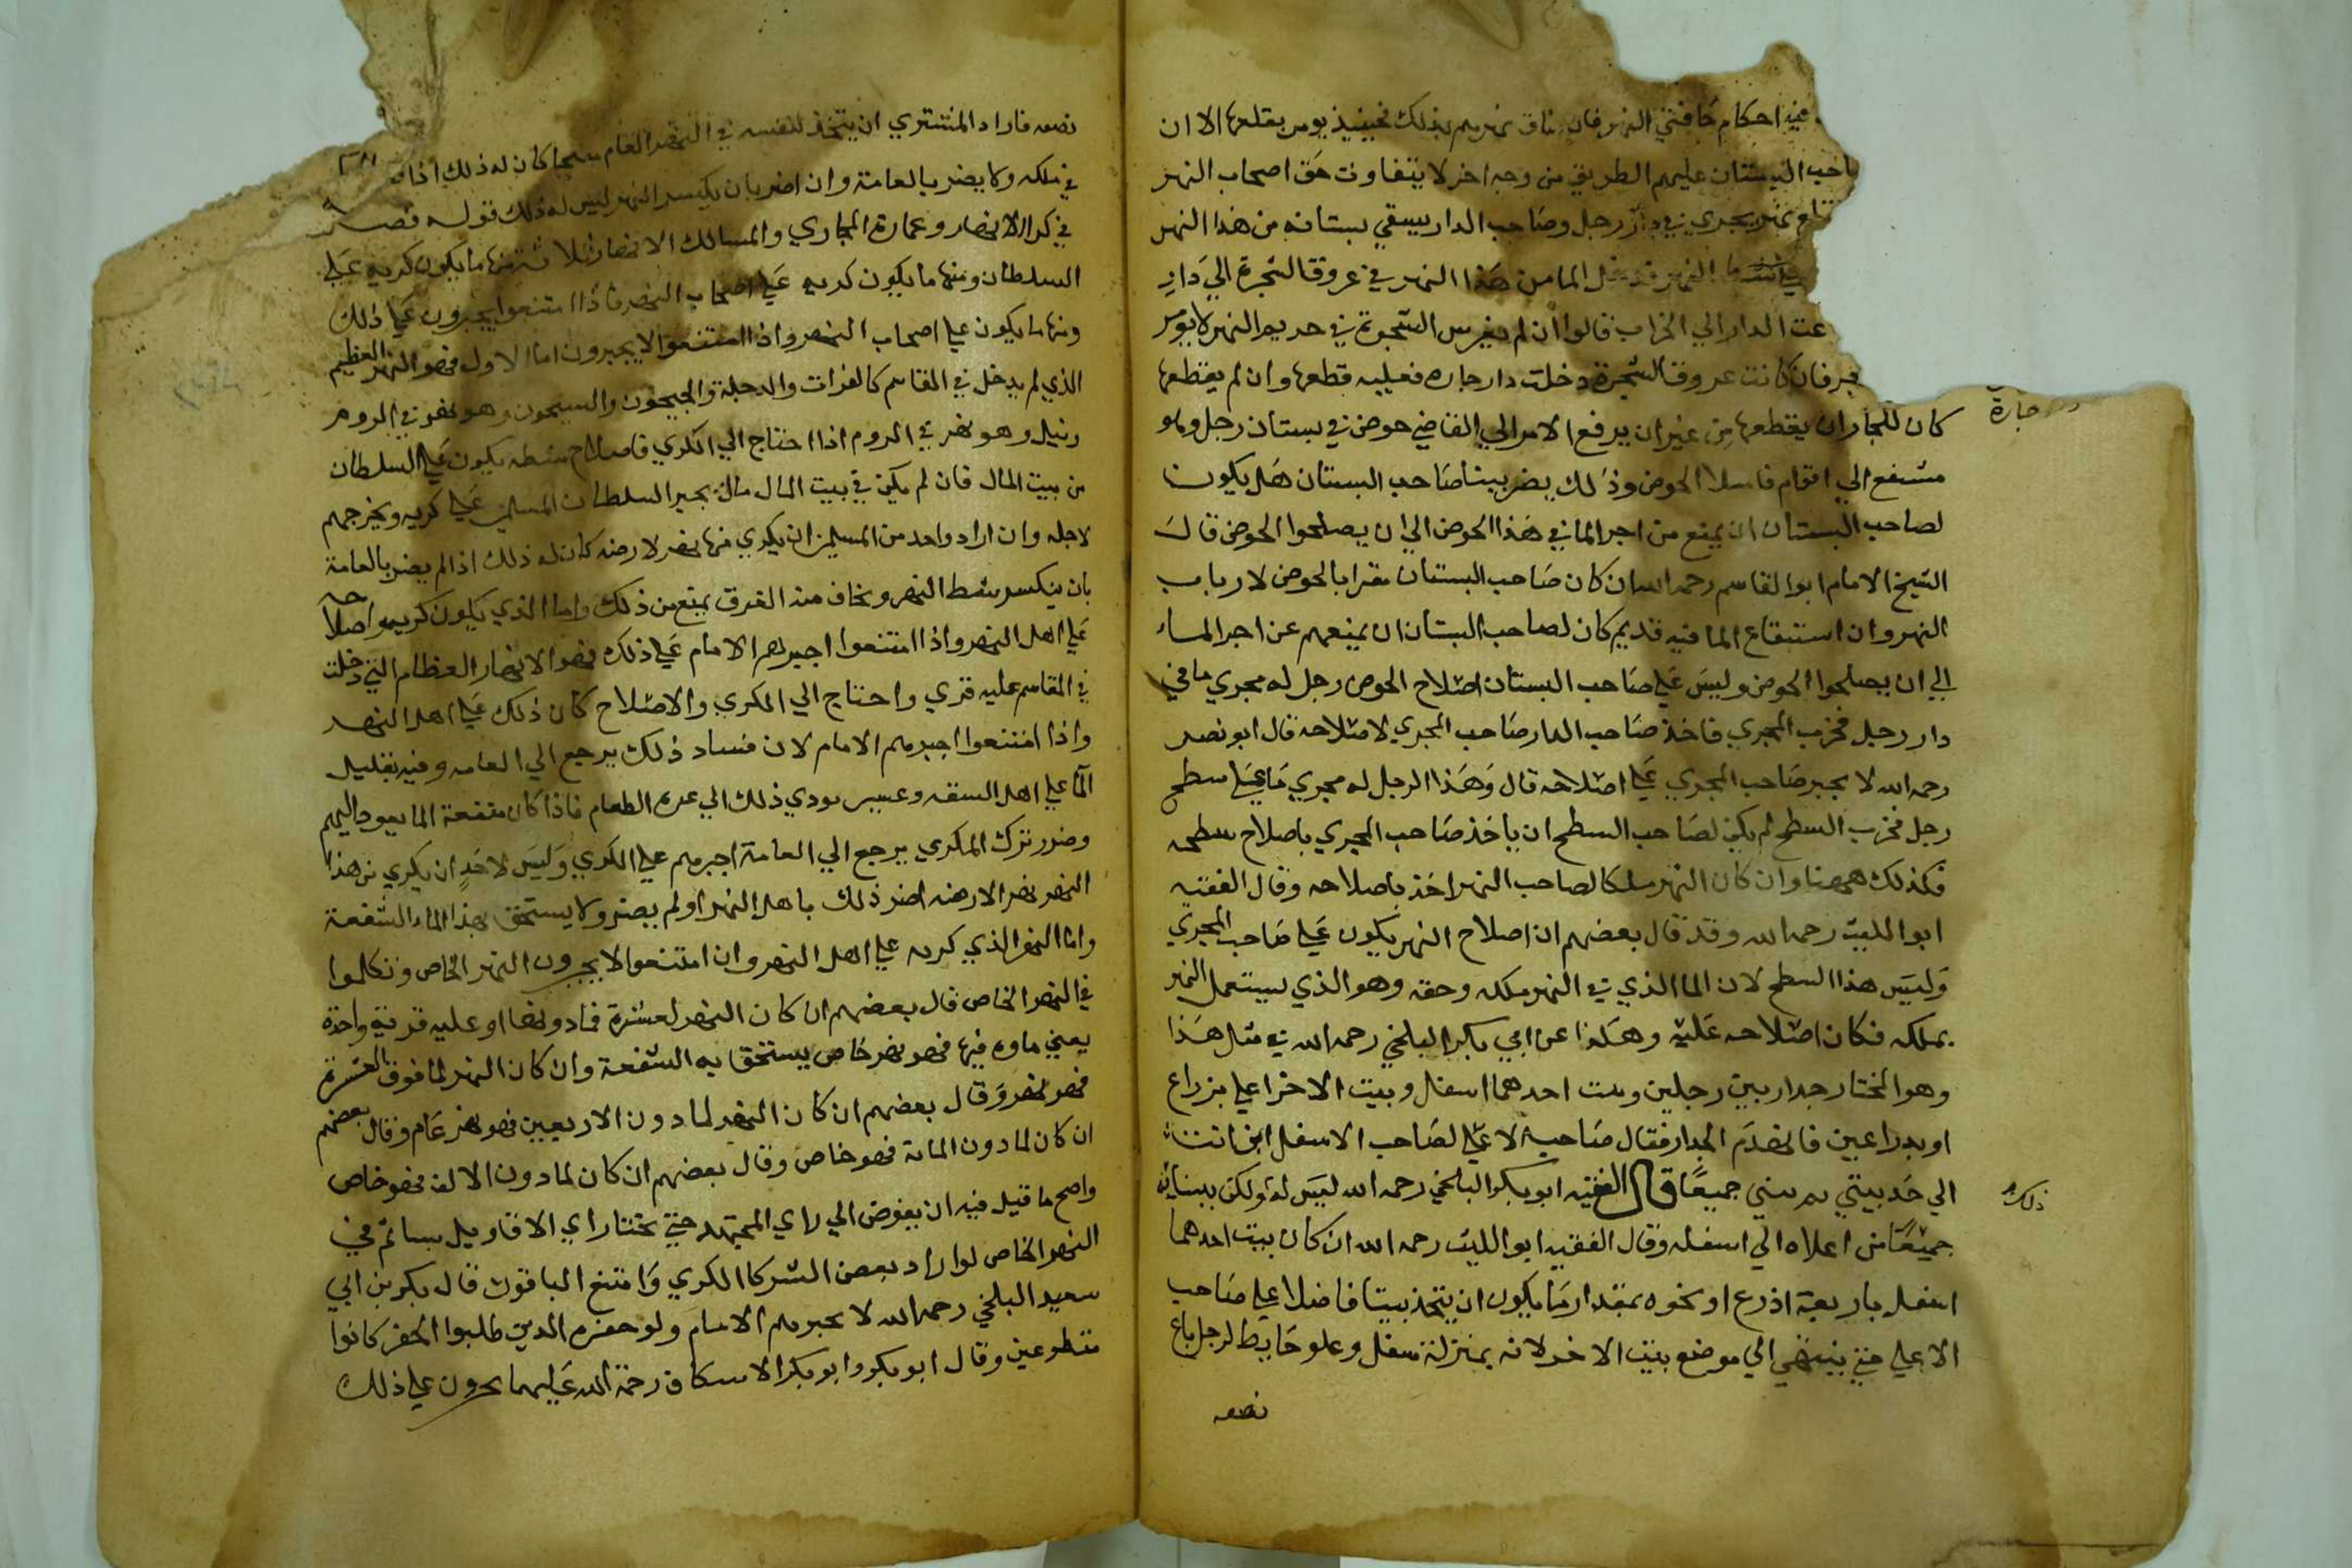 فيه احكام حافتي النهر فان ضاق نهرهم بذلك فحينيذ يومر بقلعها الا ان
صاحب البستان عليهم الطريق من وجه اخر لا يتفاوت حق اصحاب النهر
نهر يجري في دار رجل وصاحب الدار يسقي بستانه من هذا النهر
النهر فدخل الما من هذا النهر في عروق الشجرة الي دار
الدار الي الخراب قالوا ان لم يغرس الشجرة في حريم النهر لا يومر
فان كانت عروق الشجرة دخلت دار جاره فعليه قطعها وان لم يقطعها
جارة
كان للجار ان يقطعها من غير ان يرفع الامر الي القاضي حوض في بستان رجل وهو
مشفع الي اقوام فاسلا الحوض وذلك يضر بيتا صاحب البستان هل يكون
لصاحب البستان ان يمنع من اجرا الما في هذا الحوض الي ان يصلحوا الحوض قال
الشيخ الامام ابوا القاسم رحمه الله ان كان صاحب البستان مقرا بالحوض لارباب
النهر وان استنقاع الما فيه قديم كان لصاحب البستان ان يمنعهم عن اجرا الماء
الي ان يصلحوا الحوض وليس علي صاحب البستان اصلاح الحوض رجل له مجري ما في
دار رجل فخرب المجري فاخذ صاحب الدار صاحب المجري لاصلاحه قال ابو نصر
رحمه الله لا يجبر صاحب المجري علي اصلاحه قال وهذا الرجل له مجري ما علي سطح
رجل فخرب السطح لم يكن لصاحب السطح ان ياخذ صاحب المجري باصلاح سطحه
فكذلك ههنا وان كان النهر ملكا لصاحب النهر اخذ باصلاحه وقال الفقيه
ابوا الليث رحمه الله وقد قال بعضهم ان اصلاح النهر يكون علي صاحب المجري
وليس هذا السطح لان الما الذي في النهر ملكه وحقه وهو الذي يستعمل النهر
بملكه فكان اصلاحه عليه وهكذا عن ابي بكر البلخي رحمه الله في مثل هذا
وهو المختار جدار بين رجلين وبيت احدهما اسفل وبيت الاخر اعلي بزراع
او بدراعين فانهدم الجدار فقال صاحب الاعلي لصاحب الاسفل ابن انت
الي حد بيتي ثم نبني جميعا قال الفقيه ابو بكر البلخي رحمه الله ليس له ولكن يبنيانه
ذلك
جميعا من اعلاه الي اسفله وقال الفقيه ابو الليث رحمه الله ان كان بيت احدهما
اسفل باربعة اذرع او نحوه بمقدار ما يكون ان يتخذ بيتا فاضلا علي صاحب
الاعلي حتي ينتهي الي موضع بيت الاخر لانه بمنزلة سفل وعلو حايط لرجل باع
نصفه
نصفه فاراد المشتري ان يتخذ لنفسه في النهر العام كان له ذلك اذا
في ملكه ولا يضر بالعامة وان اضر بان يكسر النهر ليس له ذلك قوله فصل
في كرا الانهار وعمارة المجاري والمسالك الانهار ثلاثة منها ما يكون كريه علي
السلطان ومنها ما يكون كريه علي اصحاب النهر فاذا امتنعوا يجبرون علي ذلك
ومنها ما يكون علي اصحاب النهر واذا امتنعوا لا يجبرون اما الاول فهو النهر العظيم
الذي لم يدخل في المقاسم كالفرات والدجلة والجيحون والسيحون وهو نهر في الروم
ونيل وهو نهر في الروم اذا احتاج الي الكري فاصلاح شطه يكون علي السلطان
من بيت المال فان لم يكن في بيت المال مال يجبر السلطان المسلمين علي كريه ويخرجهم
لاجله وان اراد واحد من المسلمين ان يكري منها نهرا لارضه كان له ذلك اذا لم يضر بالعامة
بان ينكسر شط النهر ويخاف منه الغرق يمنع من ذلك واما الذي يكون كريه واصلاحه
علي اهل النهر واذا امتنعوا اجبرهم الامام علي ذلك فهو الانهار العظام التي دخلت
في المقاسم عليه قري واحتاج الي الكري والاصلاح كان ذلك علي اهل النهر
واذا امتنعوا اجبرهم الامام لان فساد ذلك يرجع الي العامه وفيه تقليل
الما علي اهل الشفه وعسي يودي ذلك الي عزه الطعام فاذا كان منفعة الما يعود اليهم
وضرر ترك الكري يرجع الي العامة اجبرهم علي الكري وليس لاحد ان يكري من هذا
النهر نهرا لارضه اضر ذلك باهل النهر او لم يضر ولا يستحق بهذا الماء الشفعة
واما النهر الذي كريه علي اهل النهر وان امتنعوا لا يجبرون النهر الخاص وتكلموا
في النهر الخاص قال بعضهم ان كان النهر لعشرة فما دونها او عليه قرية واحدة
يعني ماوه فيها فهو نهر خاص يستحق به الشفعة وان كان النهر لما فوق العشرة
فهو نهر وقال بعضهم ان كان النهر لما دون الاربعين فهو نهر عام وقال بعضهم
ان كان لما دون المائة فهو خاص وقال بعضهم ان كان لما دون الالف فهو خاص
واصح ما قيل فيه ان يفوض الي راي المجتهد حتي يختار اي الاقاويل شا ثم في
النهر الخاص لو اراد بعض الشركا الكري وامتنع الباقون قال بكر بن ابي
سعيد البلخي رحمه الله لا يجبرهم الامام ولو حفره الذين طلبوا الحفر كانوا
متطوعين وقال ابو بكر وابو بكر الاسكاف رحمة الله عليهما يجبرون علي ذلك